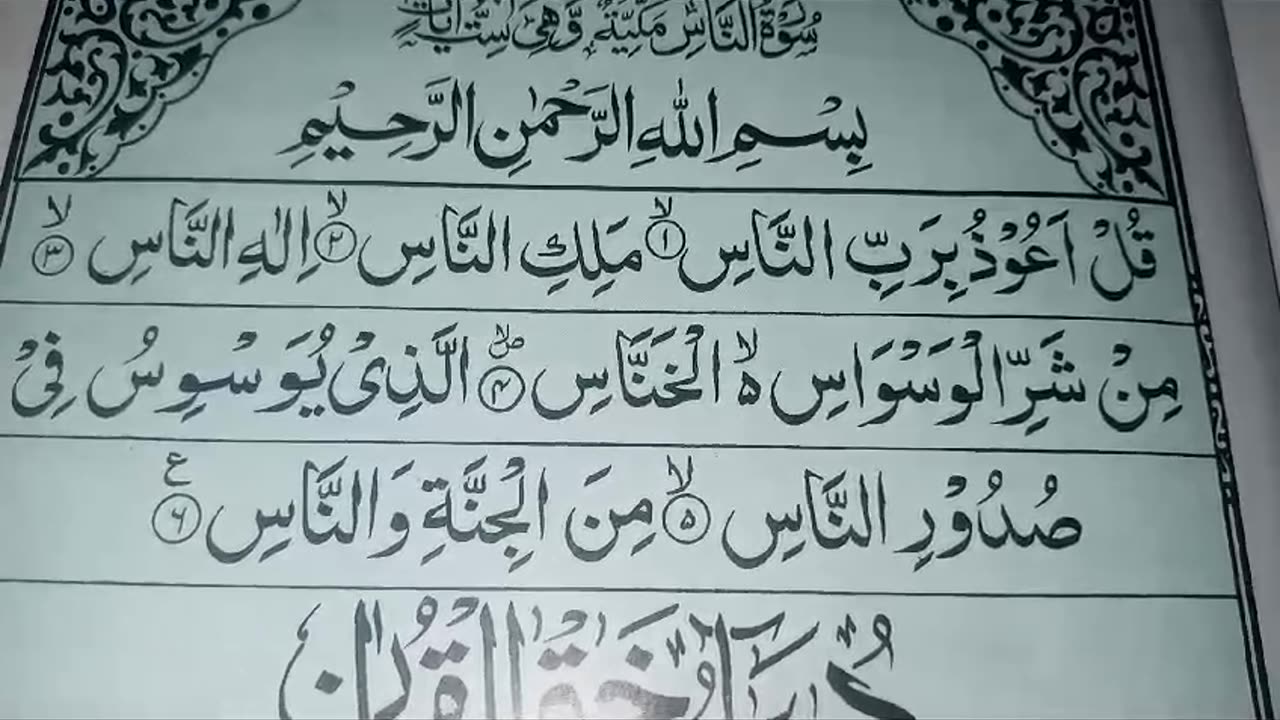 سُوْرَةُ النَّاسِ مَكِّيَّةٌ وَّهِىَ سِتُّ اٰيَاتٍ
بِسْمِ اللّٰهِ الرَّحْمٰنِ الرَّحِيْمِ
قُلْ اَعُوْذُ بِرَبِّ النَّاسِ ۙ﴿۱﴾ مَلِكِ النَّاسِ ۙ﴿۲﴾ اِلٰهِ النَّاسِ ۙ﴿۳﴾
مِنْ شَرِّ الْوَسْوَاسِ ەۙ الْخَنَّاسِ ۪ۙ﴿۴﴾ الَّذِىْ يُوَسْوِسُ فِىْ
صُدُوْرِ النَّاسِ ۙ﴿۵﴾ مِنَ الْجِنَّةِ وَالنَّاسِ ﴿۶﴾ ع
دُعَآءُ خَتْمِ الْقُرْاٰنِ